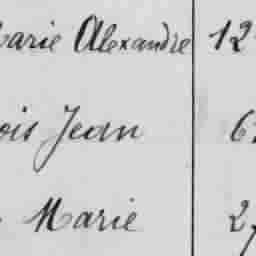 Marie Alexandre 12
ois Jean 6
Marie 27